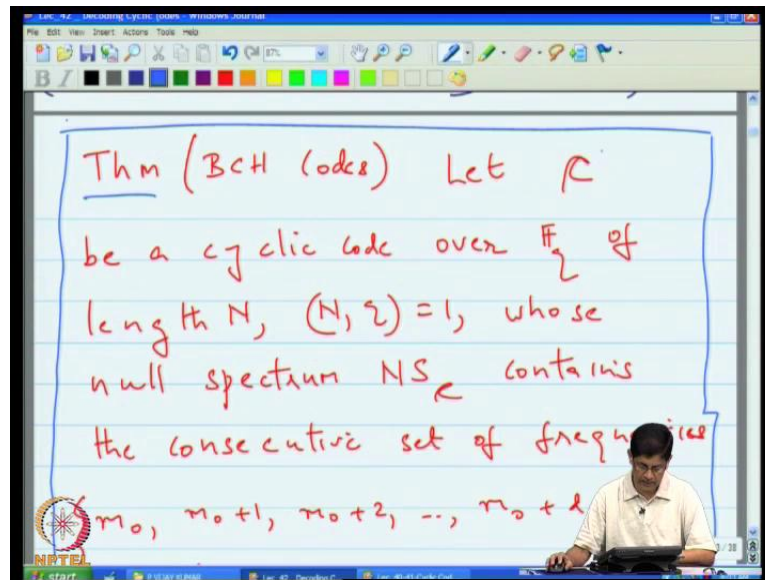 Lec_42 _ Decoding Cyclic Codes - Windows Journal
File Edit View Insert Actions Tools Help
87%
B I
Thm (BCH Codes) Let C
be a cyclic code over F_q of
length N, (N, q) = 1, whose
null spectrum NS_C contains
the consecutive set of frequencies
{m_0, m_0+1, m_0+2, .., m_0 +
NPTEL
start
Lec_42_ Decoding C...